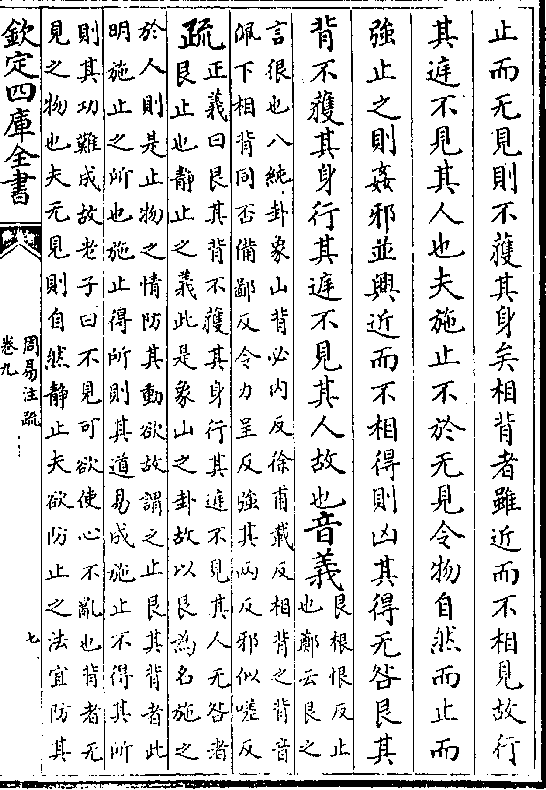 止而无見則不𫉬其身矣相背者雖近而不相見故行
其庭不見其人也夫施止不於无見令物自然而止而
強止之則姦邪並興近而不相得則凶其得无咎艮其
背不𫉬其身行其庭不見其人故也音義艮根恨反止
也鄭云艮之
言很也八純卦象山背必内反徐甫載反相背之背音
佩下相背同否備鄙反令力呈反強其兩反邪似嗟反
疏正義曰艮其背不𫉬其身行其庭不見其人无咎者
艮止也静止之義此是象山之卦故以艮為名施之
於人則是止物之情防其動欲故謂之止艮其背者此
明施止之所也施止得所則其道易成施止不得其所
則其功難成故老子曰不見可欲使心不亂也背者无
見之物也夫无見則自然静止夫欲防止之法宜防其
欽定四庫全書
周易注疏
卷九
七